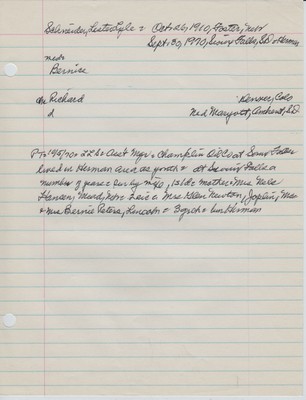 Schneider, Lester Lyle = Oct. 26, 1910, Foster, Nebr
Sept. 30, 1970, Sioux Falls, SD
md=
Bernice
ch= Richard Denver, Colo
d Ned Maryott, Amherst, SD
P 10/5/70: LLS = Mgr = Champlin Oil Co at Sioux Falls
lived in Herman area as youth = at Sioux Falls a
number of years = Sur by = mother = Mrs Nels
Hansen, Mead, Nebr = Mrs Helen Newton, Joplin, Mo
= Mrs Bernie Peters, Lincoln = 3 = bur Herman